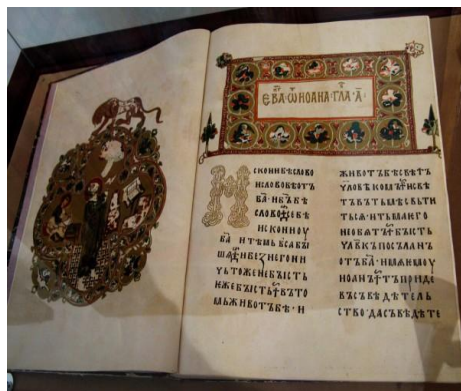 ЕВА·ѾИОАНА·ГЛА·А҃·
ИСКОНИБѢСЛОВО
ИСЛОВОБѢОТЪ
Б҃АИБ҃ЪБѢ
СЛОВО·СЕБѢ
ИСКОНИОУ
Б҃АИТѢМЬВЬСАБЫ
ШѦ·ИБЕꙀНЕГОНИ
ЧЬТОЖЕНЕБЫСТЬ
ЕЖЕБЫСТЬ·ВЪТО
МЬЖИВОТЪБѢ·И
ЖИВОТЪБѢСВѢТЪ
ЧЛОВѢКОМЪ·ИСВѢ
ТЪВЪТЬМѢСВЬТИ
ТЬСѦ·ИТЬМАѤГО
НЕОБѦТЪ·БЫСТЬ
ЧЛ҃ВКЪПОСЪЛАНЪ
ОТЪБ҃А·ИМѦѤМОУ
ИОАНЪ·ТЪПРИДЕ
ВЪСЪВѢДѢТЕЛЬ
СТВО·ДАСЪВѢДѢТЕ